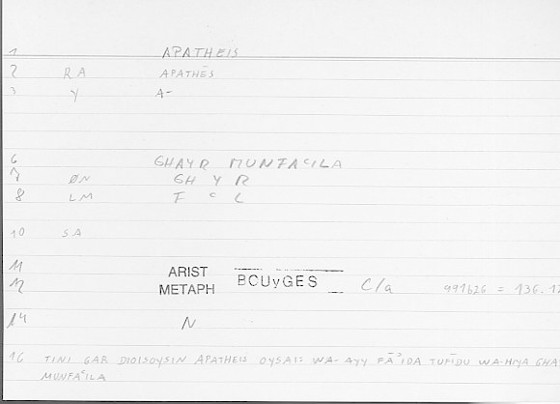 1 APATHEIS
2 RA APATHĒS
3 Y A-
6 GHAYR MUNFAʿILA
7 ØN GH Y R
8 LM F ʿ L
10 SA
11
12 ARIST METAPH BOUyGES C/a 991b26 = 136.12
14 N
16 TINI GAR DIOISOYSIN APATHEIS OYSAI: WA-AYY FĀʾIDA TUFĪDU WA-HIYA GHA
MUNFAʿILA